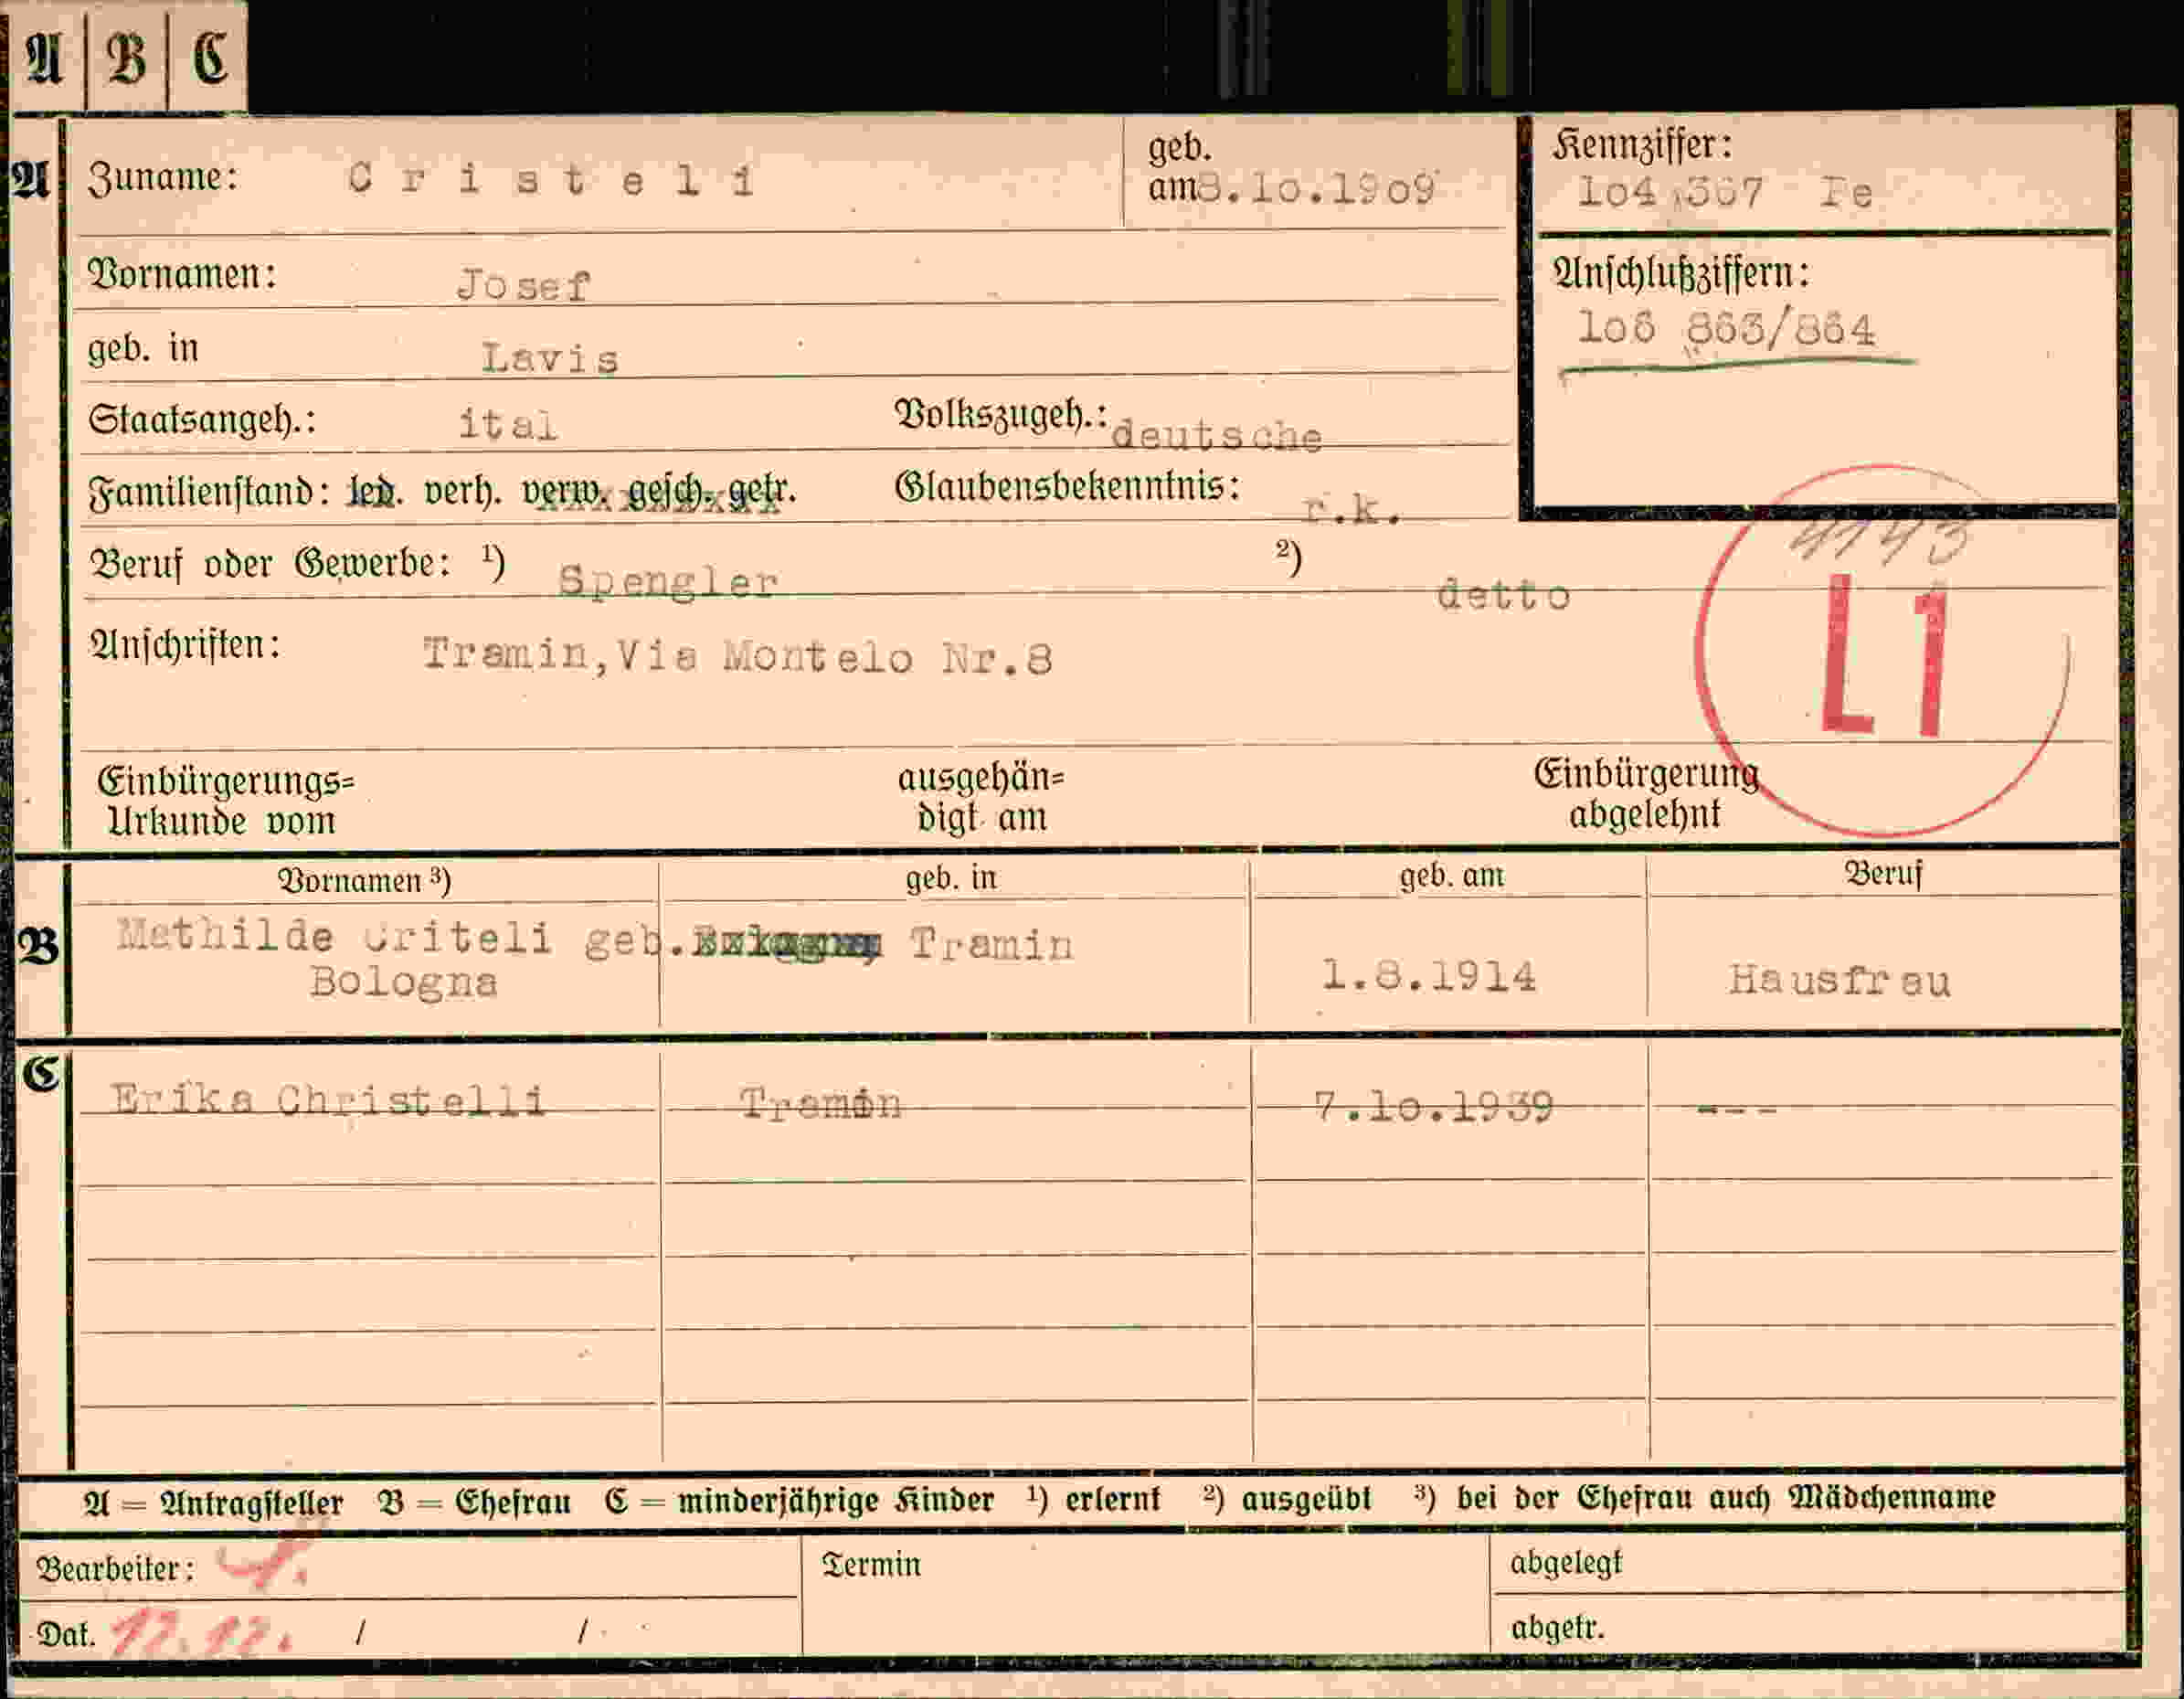 A B C
A Zuname: Cristeli geb. am 8.10.1909 Kennziffer: 104 367 Fe
Vornamen: Josef Anschlußziffern: 106 863/864
geb. in Lavis
Staatsangeh.: ital Volkszugeh.: deutsche
Familienstand: led. verh. verw. gesch. getr. Glaubensbekenntnis: r.k.
4143
Beruf oder Gewerbe: 1) Spengler 2) detto
L1
Anschriften: Tramin, Via Montelo Nr.8
Einbürgerungs= ausgehän= Einbürgerung
Urkunde vom digt am abgelehnt
Vornamen 3) geb. in geb. am Beruf
B Mathilde Criteli geb. Tramin
Bologna 1.8.1914 Hausfrau
C Erika Christelli Tramin 7.10.1939 ---
A = Antragsteller B = Ehefrau C = minderjährige Kinder 1) erlernt 2) ausgeübt 3) bei der Ehefrau auch Mädchenname
Bearbeiter: Termin abgelegt
Dat. 12.12. / / abgetr.